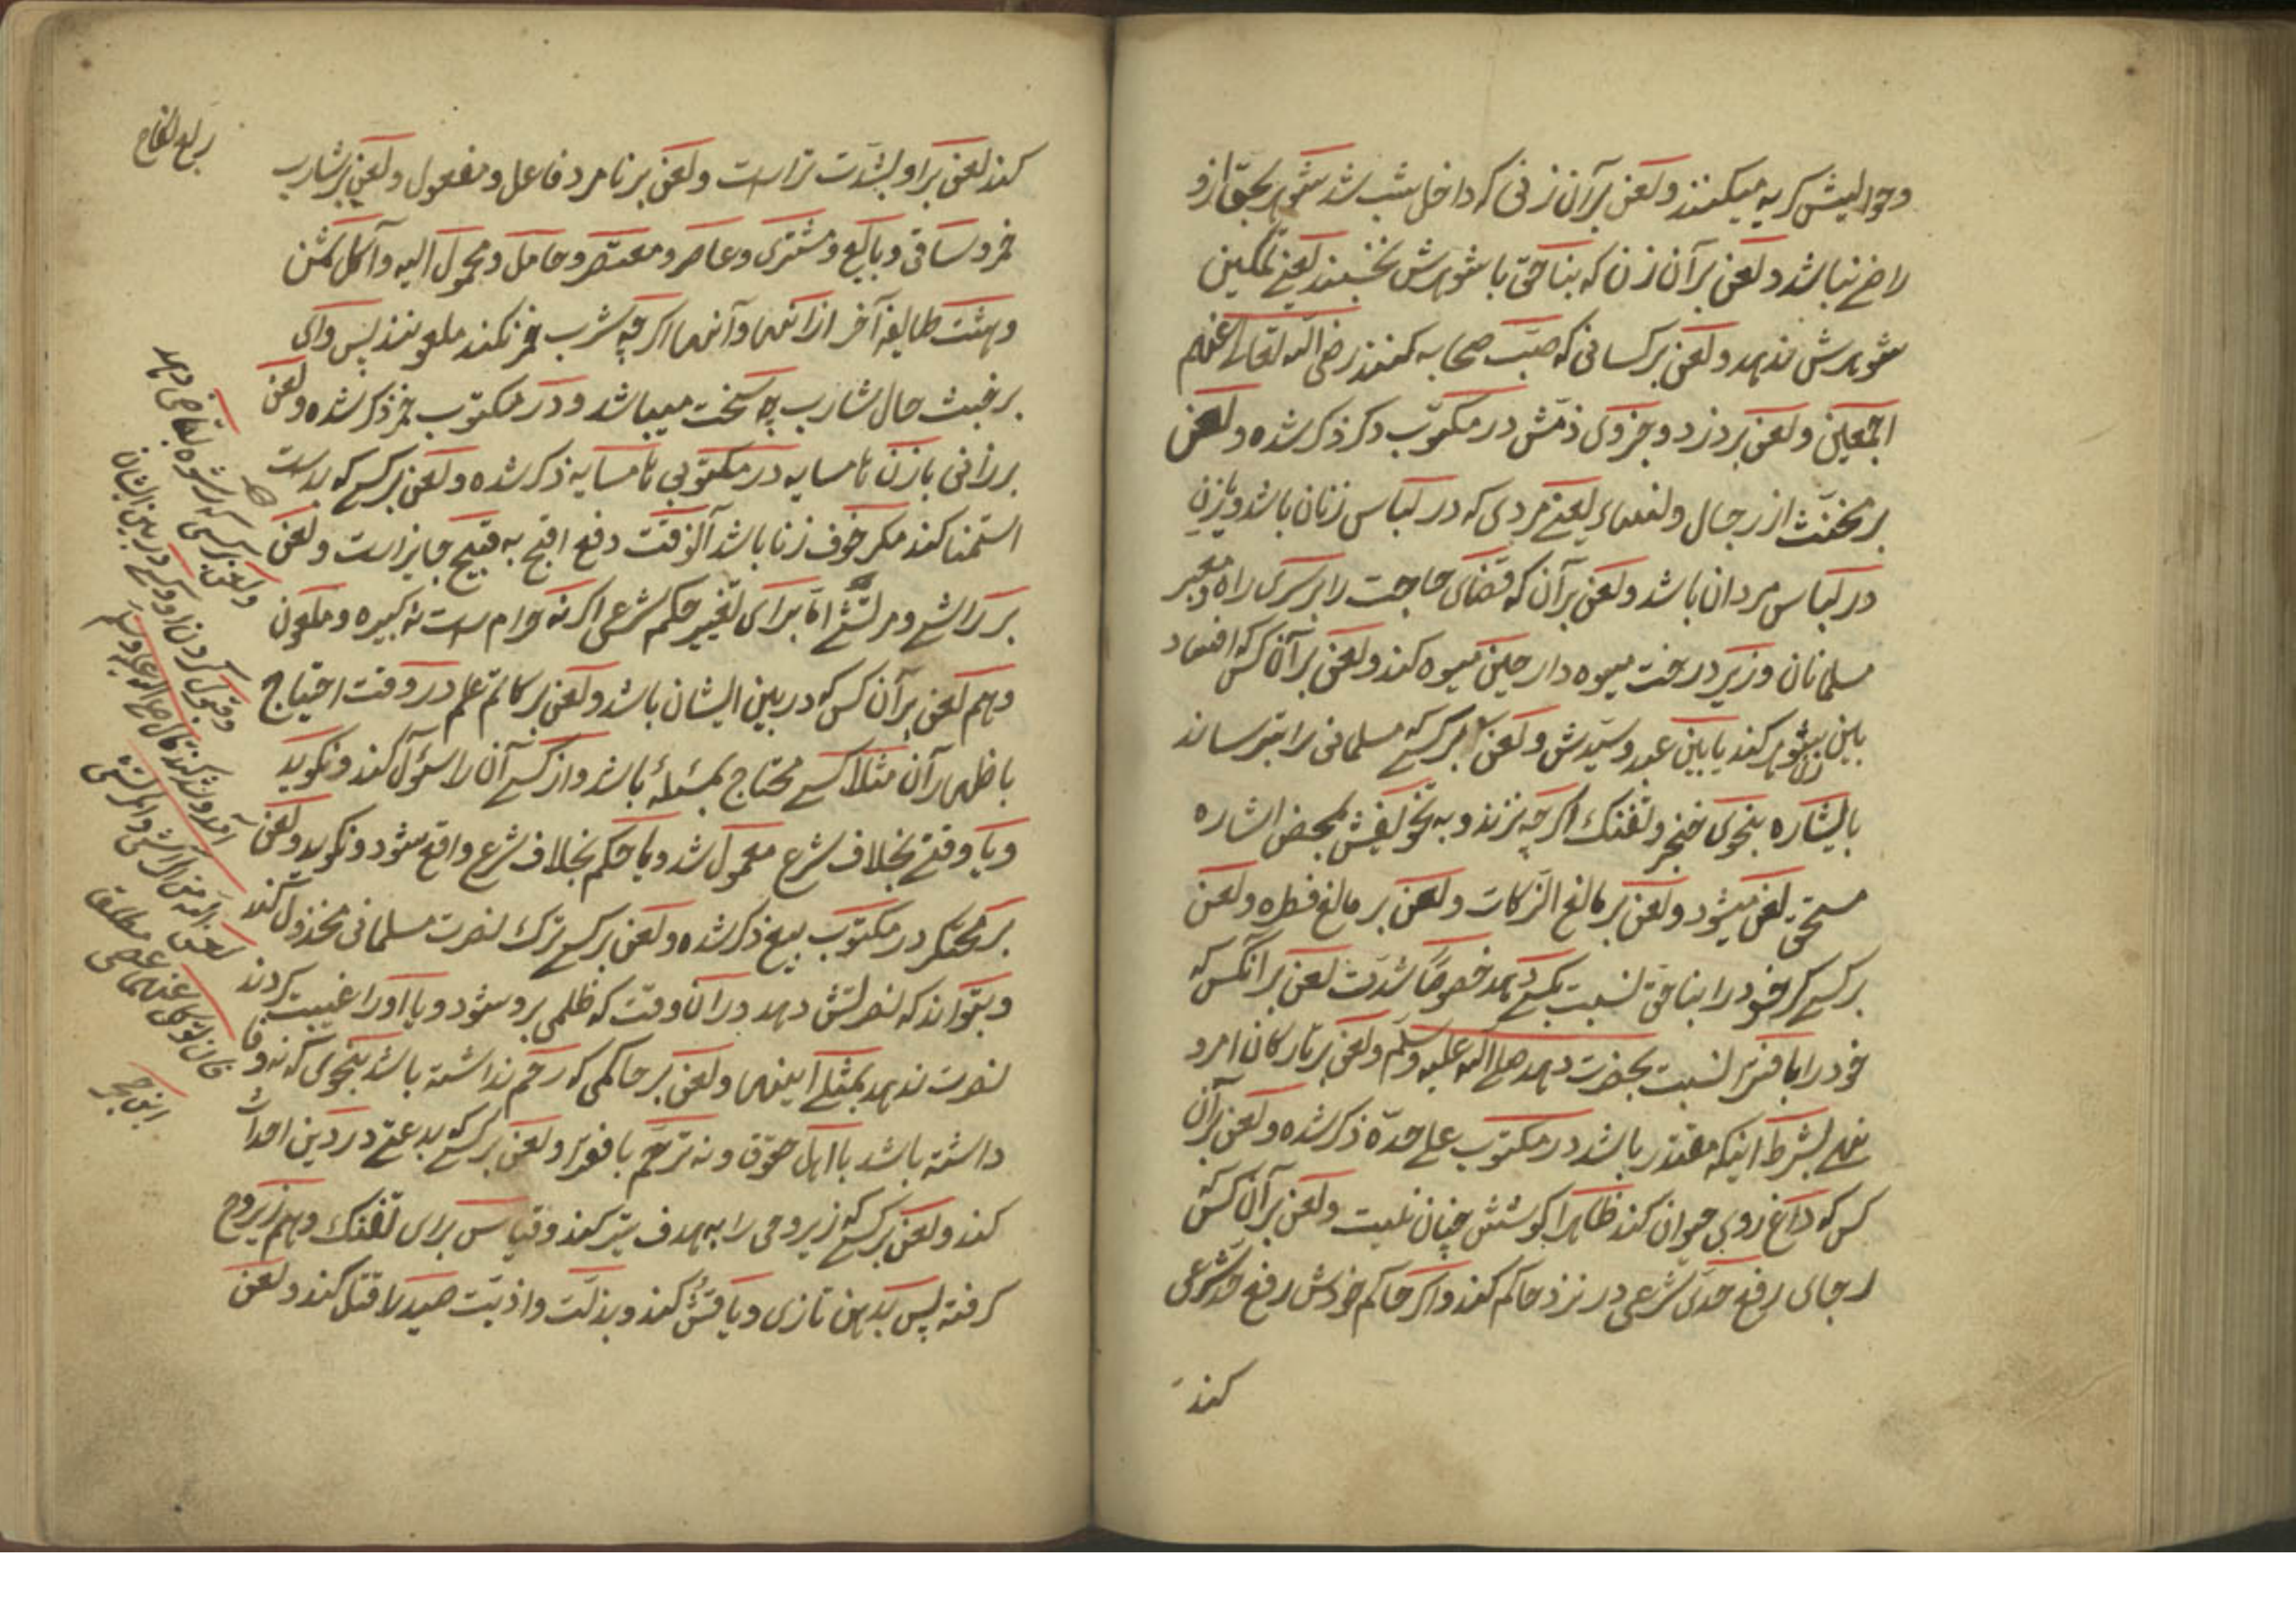 وحوالیش کریه میکنند ولعن برآن زنی که داخل شب شد شوهر بحق ازو
راضے نباشد ولعن برآن زن که بناحق باشوهرش نخسبند یعنے تمکین
شوهرش ندهد ولعن برکسانی که سبّ صحابه کنند رضی الله تعالی عنهم
اجمعین ولعن بر دزد وجزوی ذمّش در مکتوب دکر ذکر شده ولعن
بر مخنّث از رجال ونساء یعنے مردی که در لباس زنان باشد وزن
در لباس مردان باشد ولعن برآن که قضای حاجت را بر سرِی راه معبر
مسلمانان وزیر درخت میوه دار حین میوه کند ولعن برآن کس که افساد
بین زن بشوهر کند یا بین عبد وسیّدش ولعن بر کسے که مسلمانی را بترساند
باشاره بنحوی خنجر وتفنک اکرچه نزند وبه تخویفش بمحض اشاره
مستحق لعن میشود ولعن بر مانع الزکات ولعن بر مانع فطره ولعن
بر کسے که خود را بناحق نسبت بکسے دهد خصوصًا شدّت لعن برآنکس که
خود را بافترا نسبت بحضرت دهد صلی الله علیه وسلّم ولعن بر تارکان امر و
نهے بشرط اینکه مقتدر باشد در مکتوب علے حدّه ذکر شده ولعن برآن
کس که داغ روی حیوان کند ظاهرا کوشش چنان نیست ولعن برآن کس که
رجای رفع حدّی شرعی در نزد حاکم کند واکر حاکم خودش رفع حد شرعی
کند
کند لعن براو بشدّت تراست ولعن بر نامرد فاعل ومفعول ولعن بر شارب
خمر وساقی وبایع ومشتری وعاصر ومعتصر وحامل ومحمول الیه وآکل ثمن
وهشت طایفهٔ آخر از اینها وآنها اکرچه شرب خمر نکند ملعونند پس وای
بر خبث حال شارب چه سخت میباشد ودر مکتوب خمر ذکر شده ولعن
بر زانی بازن همسایه در مکتوبی همسایه ذکر شده ولعن بر کسے که بدست
استمنا کند مکر خوف زنا باشد آنوقت دفع اقبح به قبیح جایز است ولعن
بر راشے ومرتشے امّا برای تغییر حکم شرعی اکرنه حرام ست نه کبیره وملعون
وهم لعن برآن کس که در بین ایشان باشد ولعن بر کاتم علم در وقت احتیاج
باظهار آن مثلا کسے محتاج بمسئلهٔ باشد واز کسے آن را سئوال کند ونکوید
ویا وقتے بخلاف شرع معمول شد ویا حکم بخلاف شرع واقع شود ونکوید ولعن
بر محتکر در مکتوب بیع ذکر شده ولعن بر کسے ترک نصرت مسلمانی مخذول کند
وبتواند که نصرتش دهد در آن وقت که ظلمی برو شود ویا اورا غیبت کردند
نصرت ندهد بمثلے اینها ولعن بر حاکمی که رحم نداشته باشد بنحوی که نه وفا
داشته باشد با اهل حقوق ونه ترحّم بافقرا ولعن بر کسے که بدعتے در دین احداث
کند ولعن بر کسے که زیروحی را بهدف تیر کند وقیاس برای تفنک وهم زیروح
کرفته پس بدهن تازی ویا قتش کند وبذلّت واذیّت صید را قتل کند ولعن
ولعن بر کسی که رشوه بقاضی دهد
وقبول کردن او وکسے در بین ایشان
آمد وشد کند قال صلی الله علیه وسلم
لعن الله من الراشی والمرتشی
ابن حجر